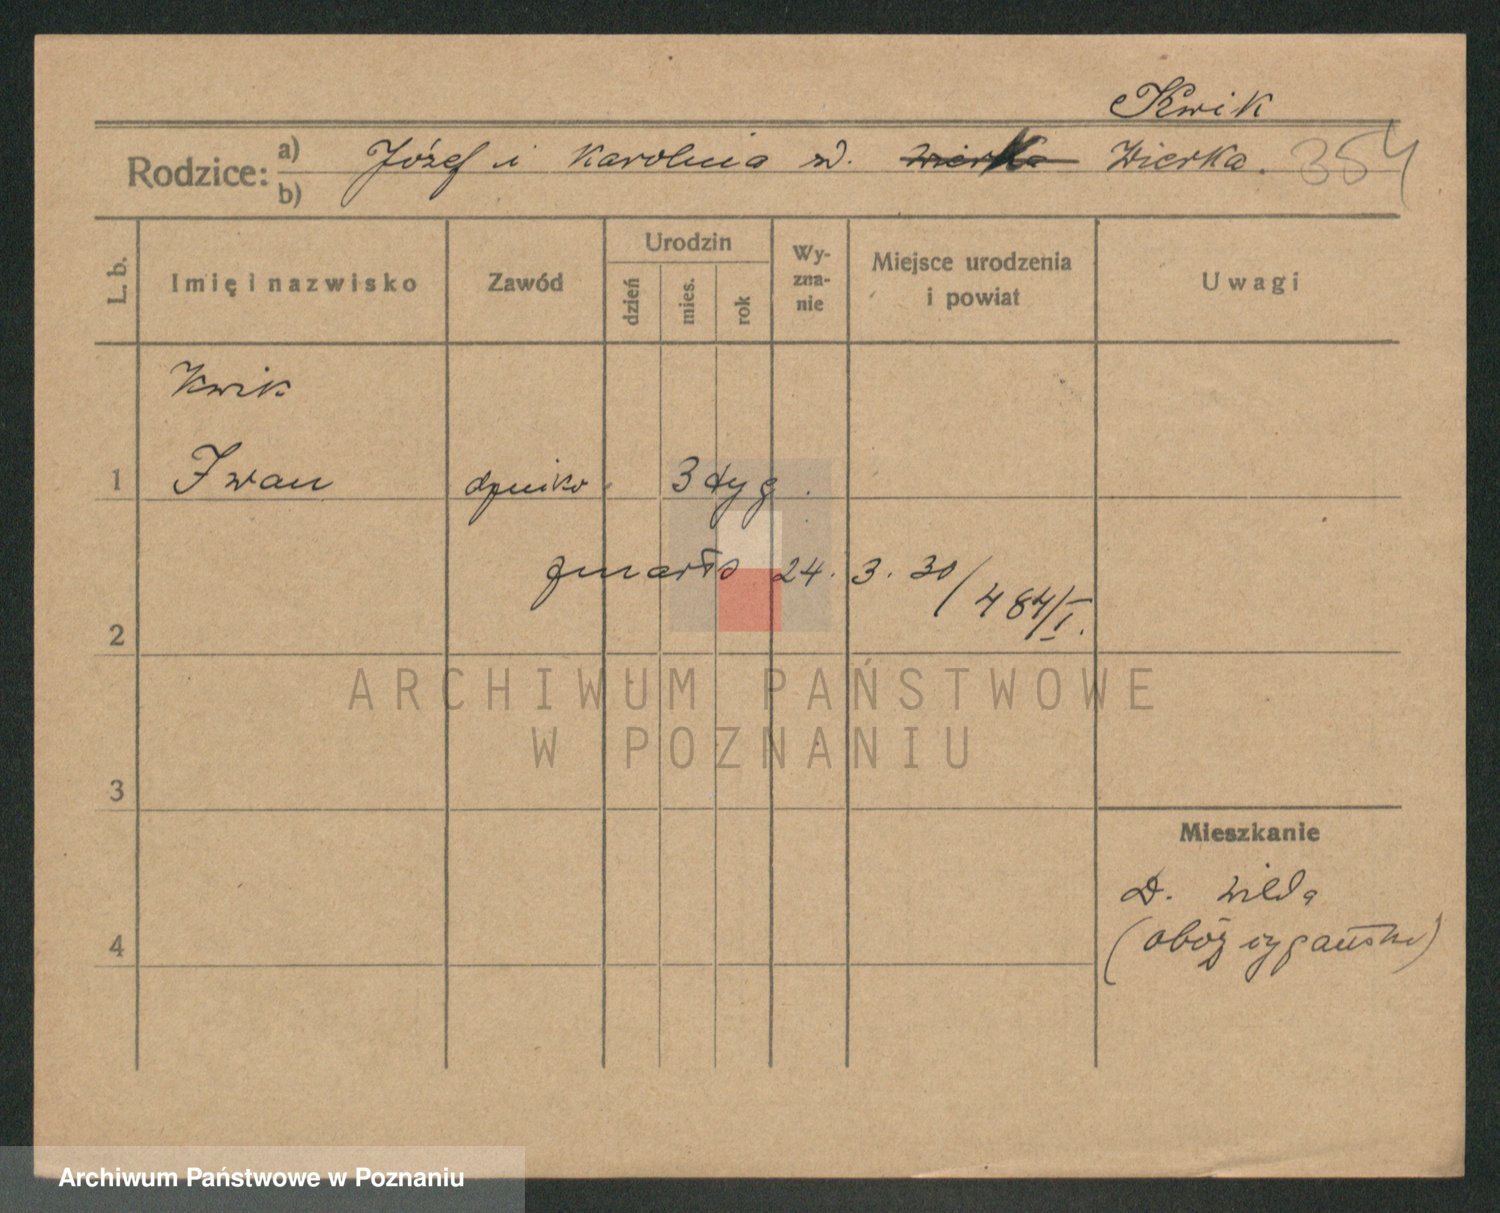 Kwik
Rodzice: a) Józef i Karolina z d. Wierka Wierka. 354
b)
L. b.
Imię i nazwisko
Zawód
Urodzin
dzień
mies.
rok
Wy-
zna-
nie
Miejsce urodzenia
i powiat
Uwagi
Kwik
1 Iwan dziecko 3 tyg.
zmarło 24. 3. 30/484/I.
2
ARCHIWUM PAŃSTWOWE
W POZNANIU
3
Mieszkanie
D. Wilda
(obóz cygański)
4
Archiwum Państwowe w Poznaniu